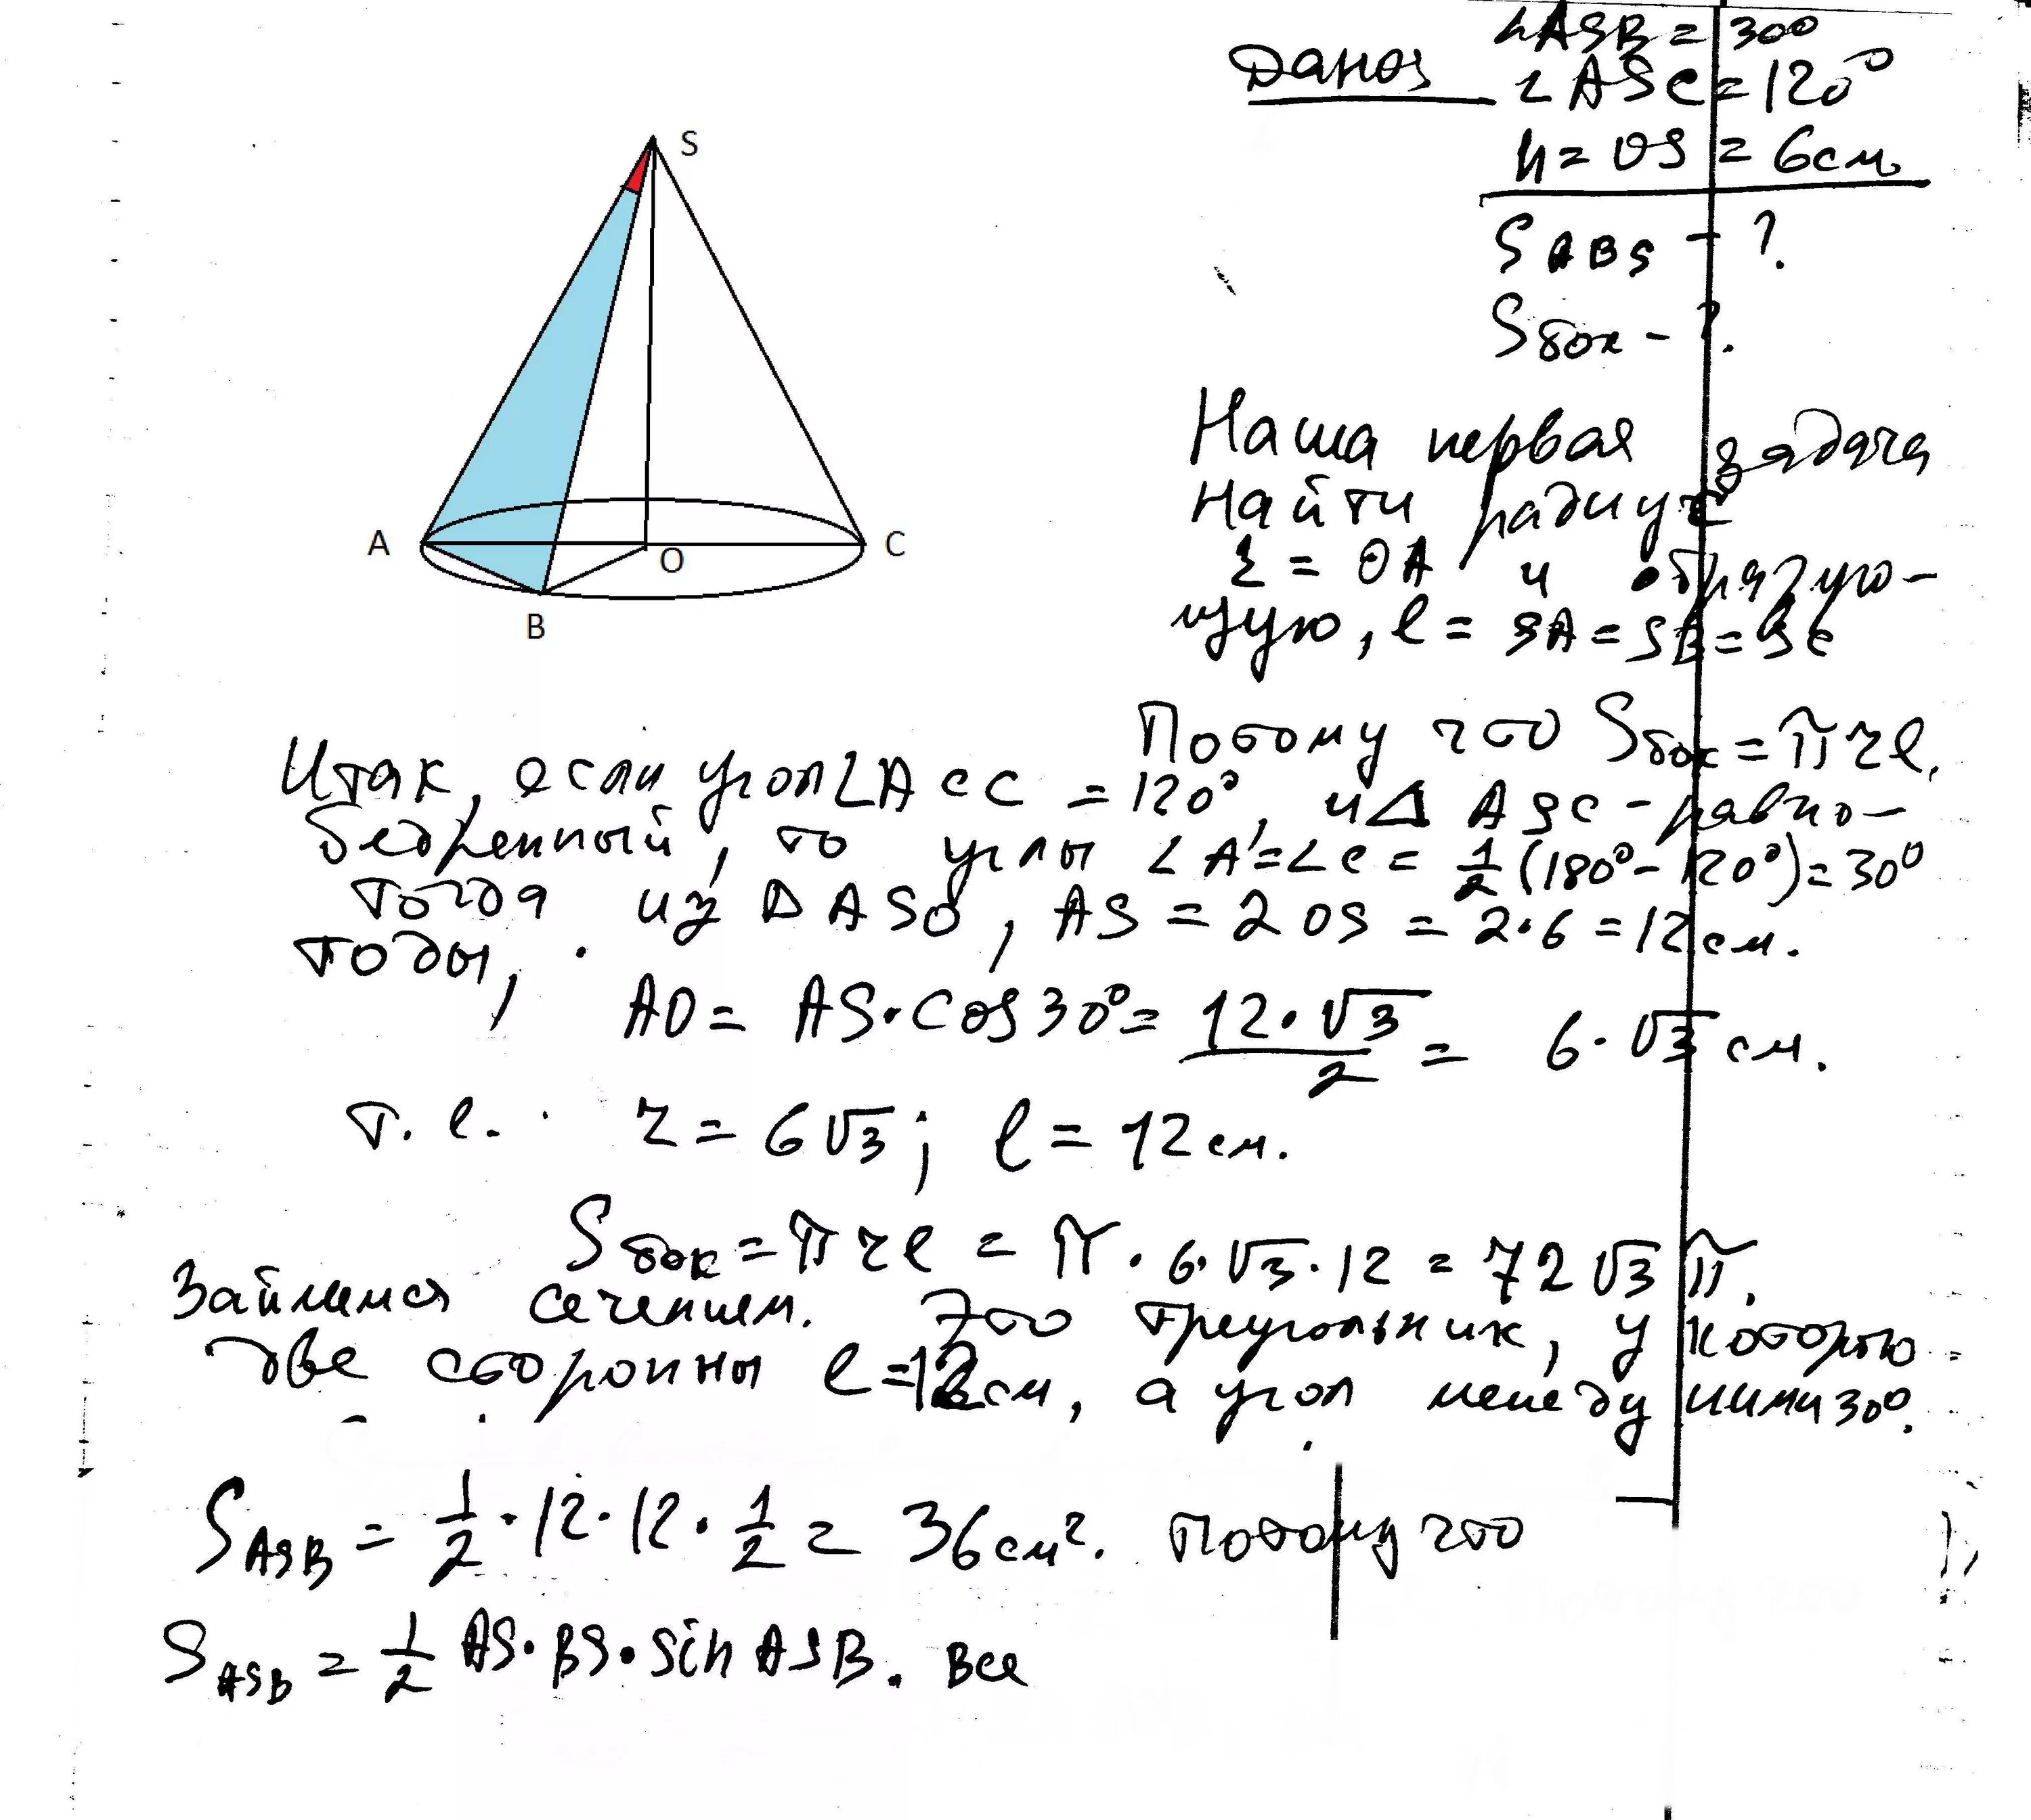 Дано:
∠ASB = 30°
∠ASC = 120°
H = OS = 6 см
S ABS - ?
S бок - ?
S
A
O
C
B
Наша первая задача
найти радиус
r = OA и образую-
щую, l = SA = SB = SC
Потому что Sбок = πrl.
Итак, если угол ∠ACC = 120°, и Δ ASC - равно-
бедренный, то углы ∠A = ∠C = 1/2 (180° - 120°) = 30°
тогда из Δ ASO, AS = 2 OS = 2·6 = 12 см.
тоды,
AO = AS·cos 30° = 12·√3/2 = 6·√3 см.
т. е. r = 6√3; l = 12 см.
Sбок = πrl = π·6·√3·12 = 72√3 π.
Займемся сечением. Это треугольник, у которого
две стороны l = 12 см, а угол между ними 30°.
S ASB = 1/2·12·12·1/2 = 36 см². Потому что
S ASB = 1/2 AS·BS·sin ASB. Все